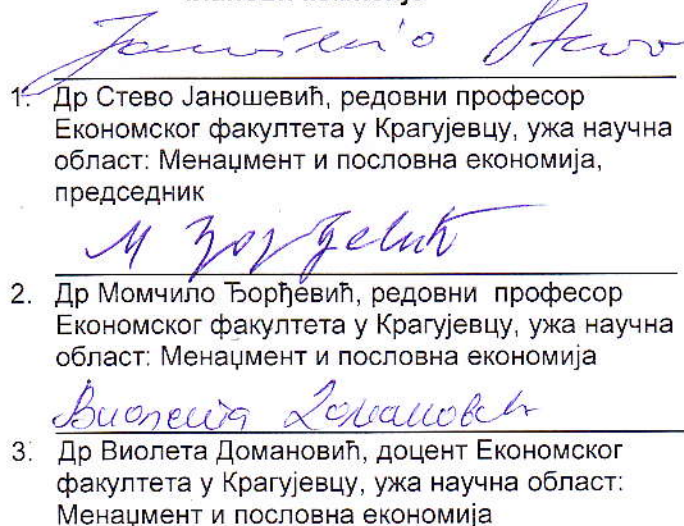 1. Др Стево Јаношевић, редовни професор
Економског факултета у Крагујевцу, ужа научна
област: Менаџмент и пословна економија,
председник
М Ђорђевић
2. Др Момчило Ђорђевић, редовни професор
Економског факултета у Крагујевцу, ужа научна
област: Менаџмент и пословна економија
Виолета Домановић
3. Др Виолета Домановић, доцент Економског
факултета у Крагујевцу, ужа научна област:
Менаџмент и пословна економија